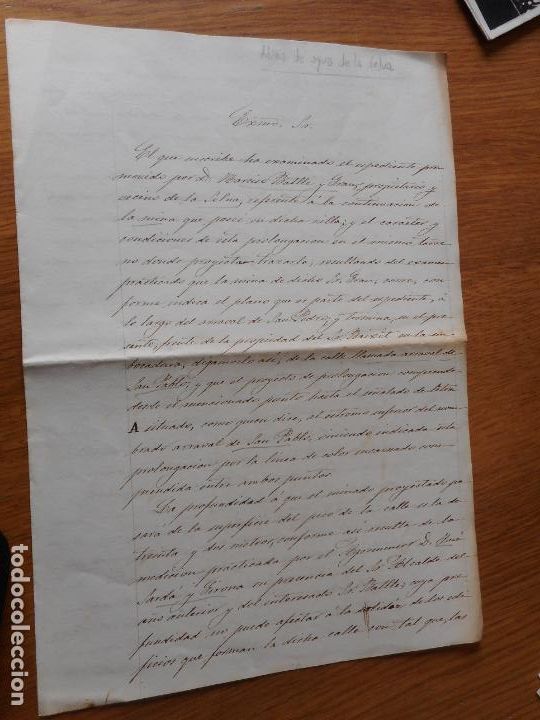 Minas de agua de la Selva
Exmo. Sr.
El que suscribe ha examinado el espediente pro-
movido por D. Narciso Batlle y Gran, propietario y
vecino de la Selva, referente á la continuacion de
la mina que posee en dicha villa; y el carácter y
condiciones de esta prolongacion en el mismo terre-
no donde proyecta trazarla; resultando del examen
practicado que la mina de dicho Sr. Gran, corre, con-
forme indica el plano que es parte del espediente, á
lo largo del arraval de San Pedro, y termina, en el pre-
sente, frente de la propiedad del Sr.
bocadura, digamoslo asi, de la calle llamada arraval de
San Pablo, y que el proyecto de prolongacion comprende
desde el mencionado punto hasta el señalado de letra
A situado, como quien dice, al estremo superior del nom-
brado arraval de San Pablo, viniendo indicada esta
prolongacion por la linea de color encarnado com-
prendida entre ambos puntos.
La profundidad á que el minado proyectado pa-
sará de la superficie del piso de la calle es la de
treinta y dos metros, conforme asi resulta de la
medicion practicada por el Agrimensor D. José
Sardá y Girona en presencia del Sr. Alcalde del
año anterior y del interesado Sr. Batlle; cuya pro-
fundidad no puede afectar á la solidez de los edi-
ficios que forman la dicha calle con tal que, las
todocoleccion.net